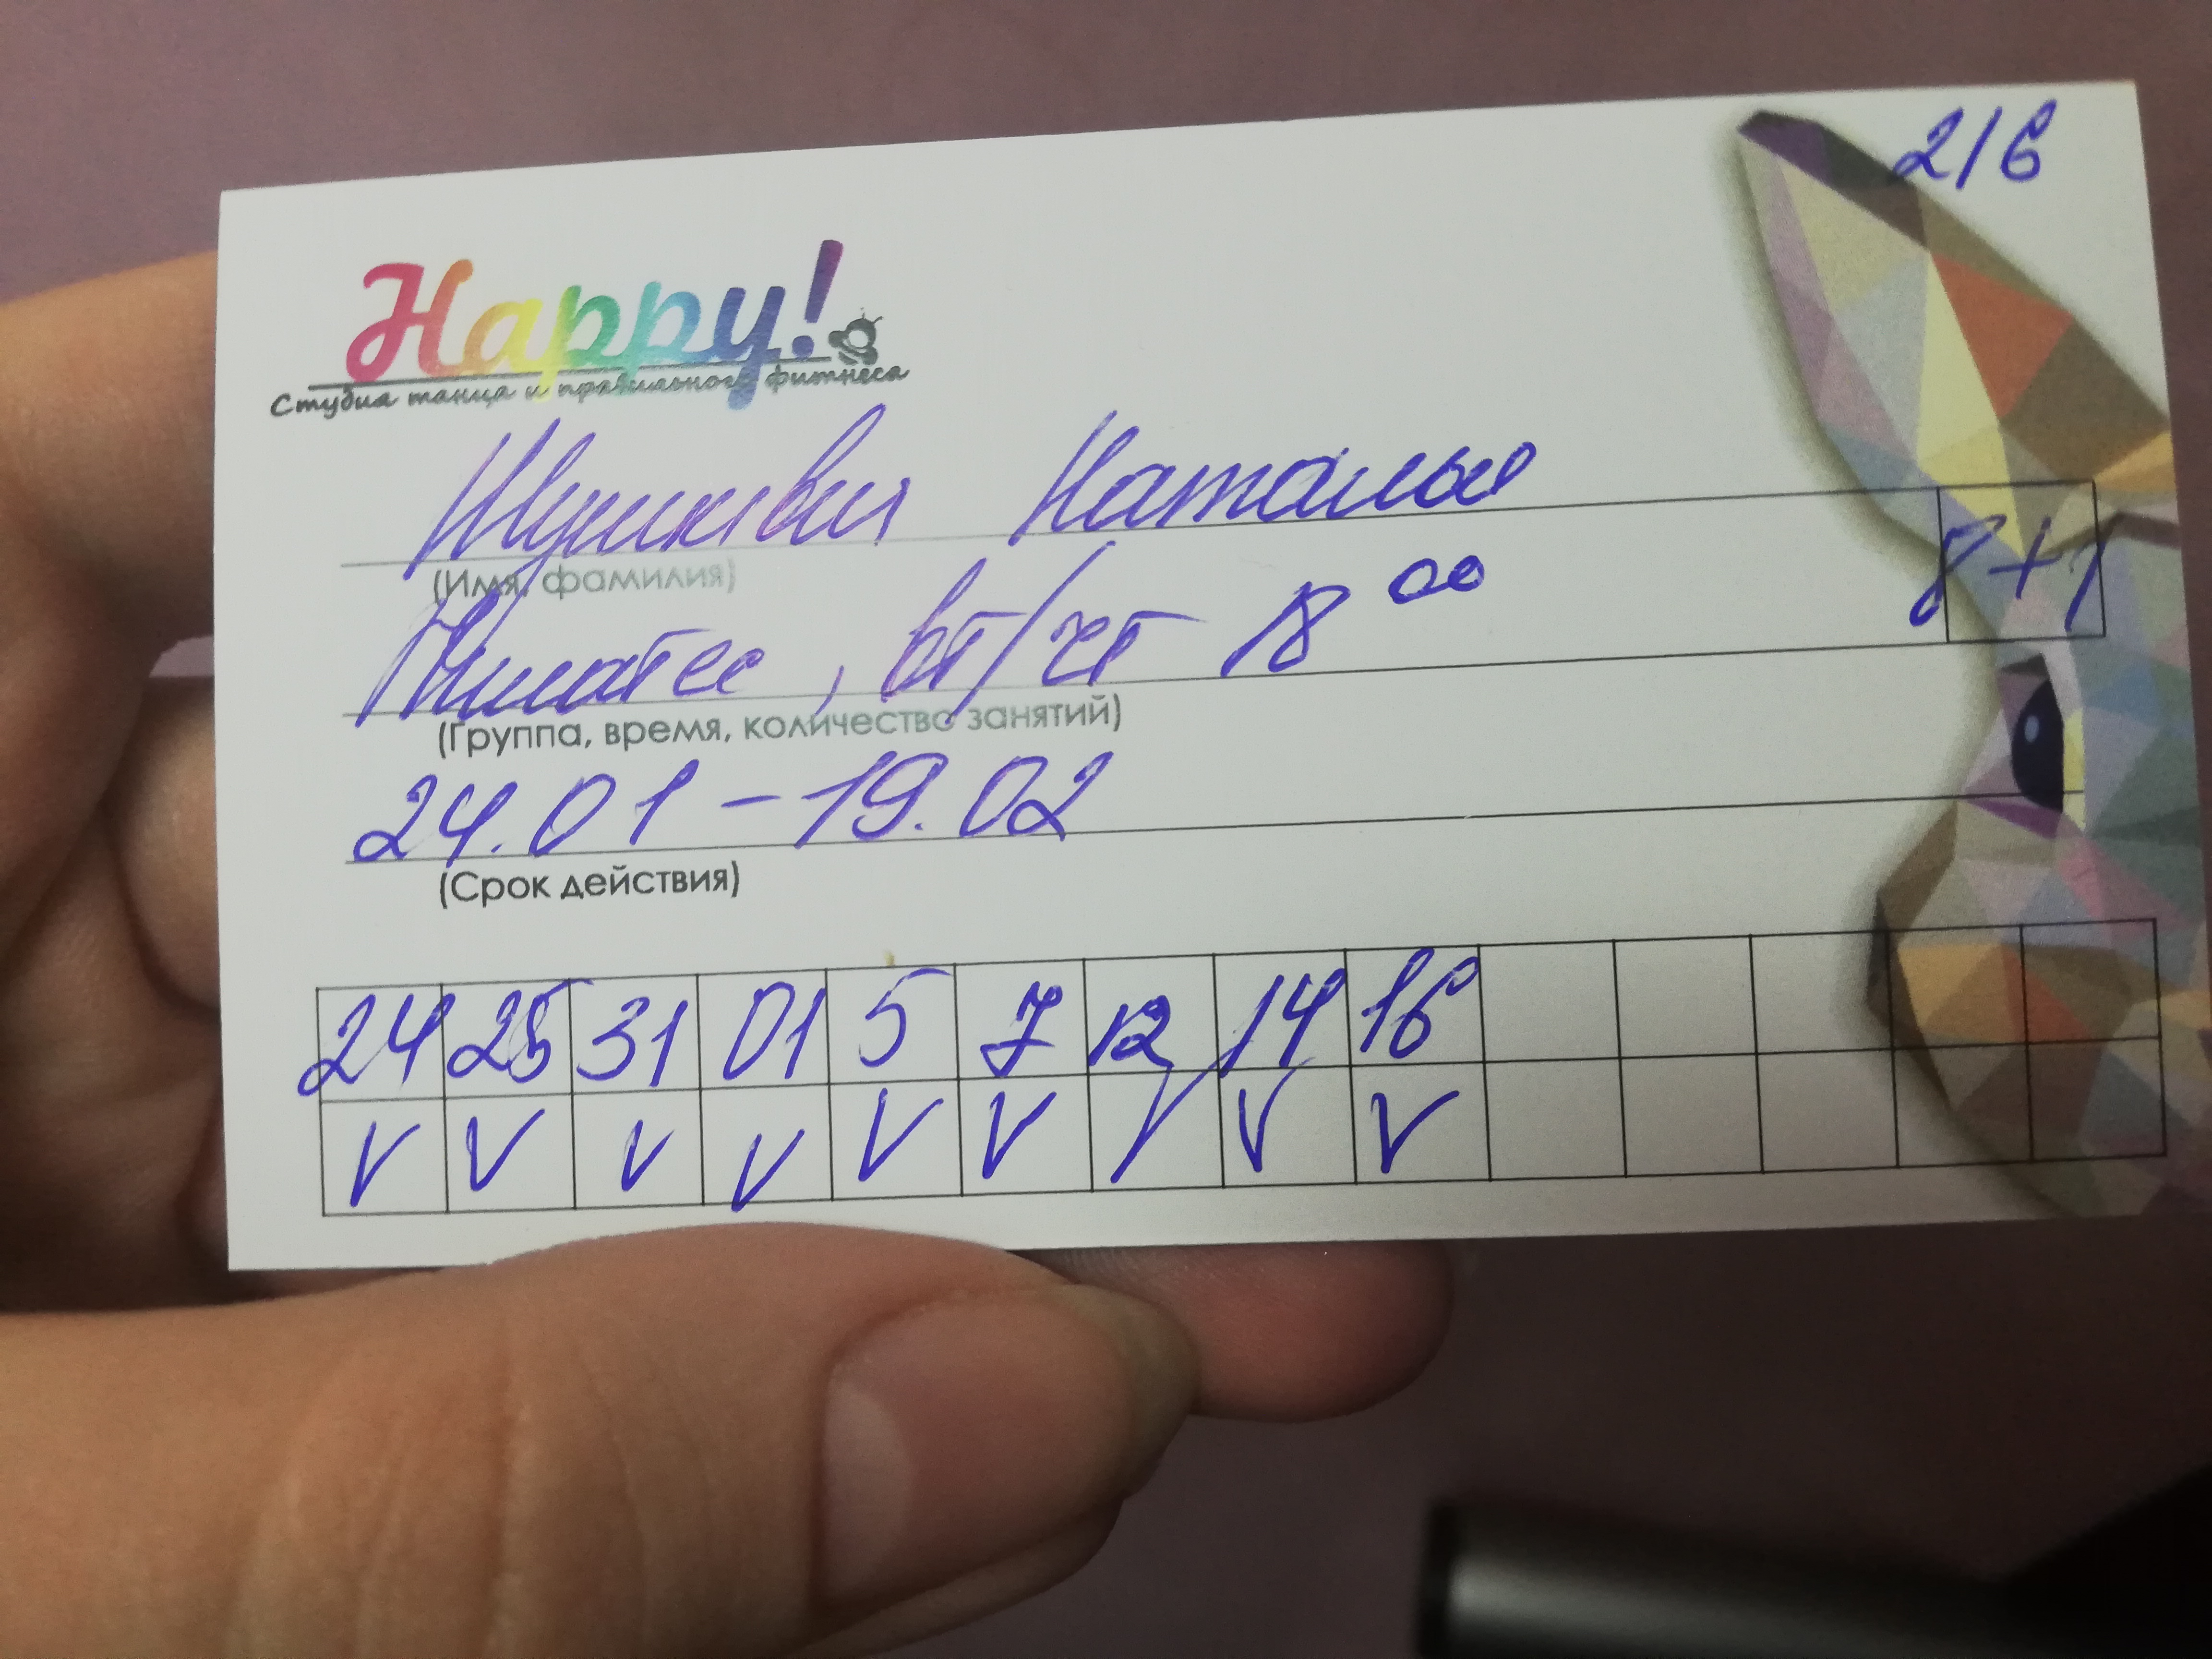 2/6
Happy!
Студия танца и правильного фитнеса
Шушкевич Наталья
(Имя, фамилия)
8+1
Пилатес, вт/чт 18⁰⁰
(Группа, время, количество занятий)
24.01 – 19.02
(Срок действия)
24 25 31 01 5 7 12 14 16
V V V V V V V V V